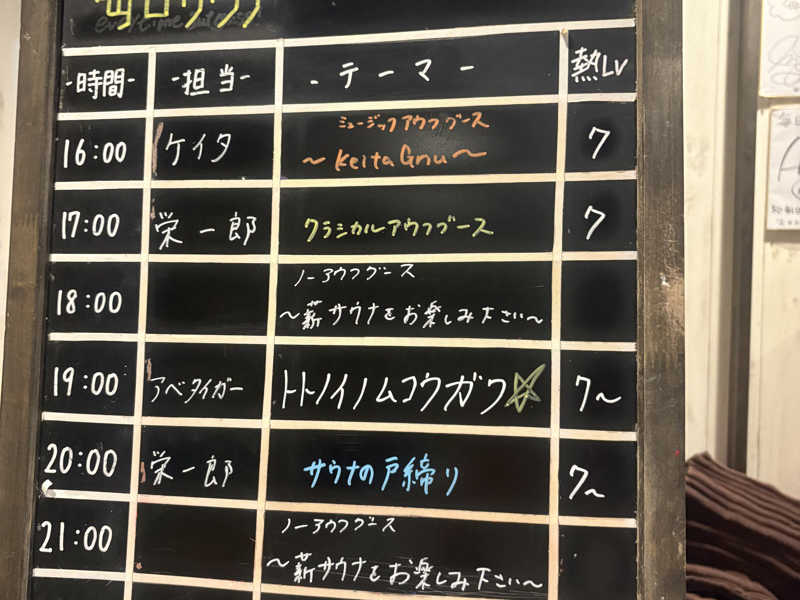 毎日サウナ
-時間- -担当- -テーマ- 熱LV
16:00 ケイタ ミュージックアウフグース 7
〜Keita Gnu〜
17:00 栄一郎 クラシカルアウフグース 7
18:00 ノーアウフグース
〜薪サウナをお楽しみ下さい〜
19:00 アベタイガー トトノイノムコウガワ☆ 7〜
20:00 栄一郎 サウナの戸締り 7〜
21:00 ノーアウフグース
〜薪サウナをお楽しみ下さい〜